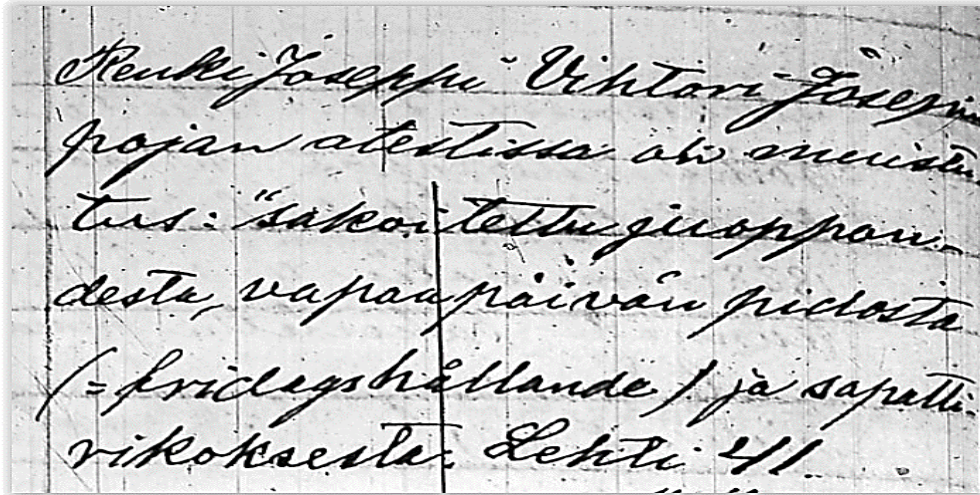 Renki Joseppi Vihtori Josepin
pojan atestissa oli muistu
tus: "sakoitettu juoppou-
desta, vapaapäivän pidosta
(= fridagshållande) ja sapatti
rikoksesta. Lehti 41